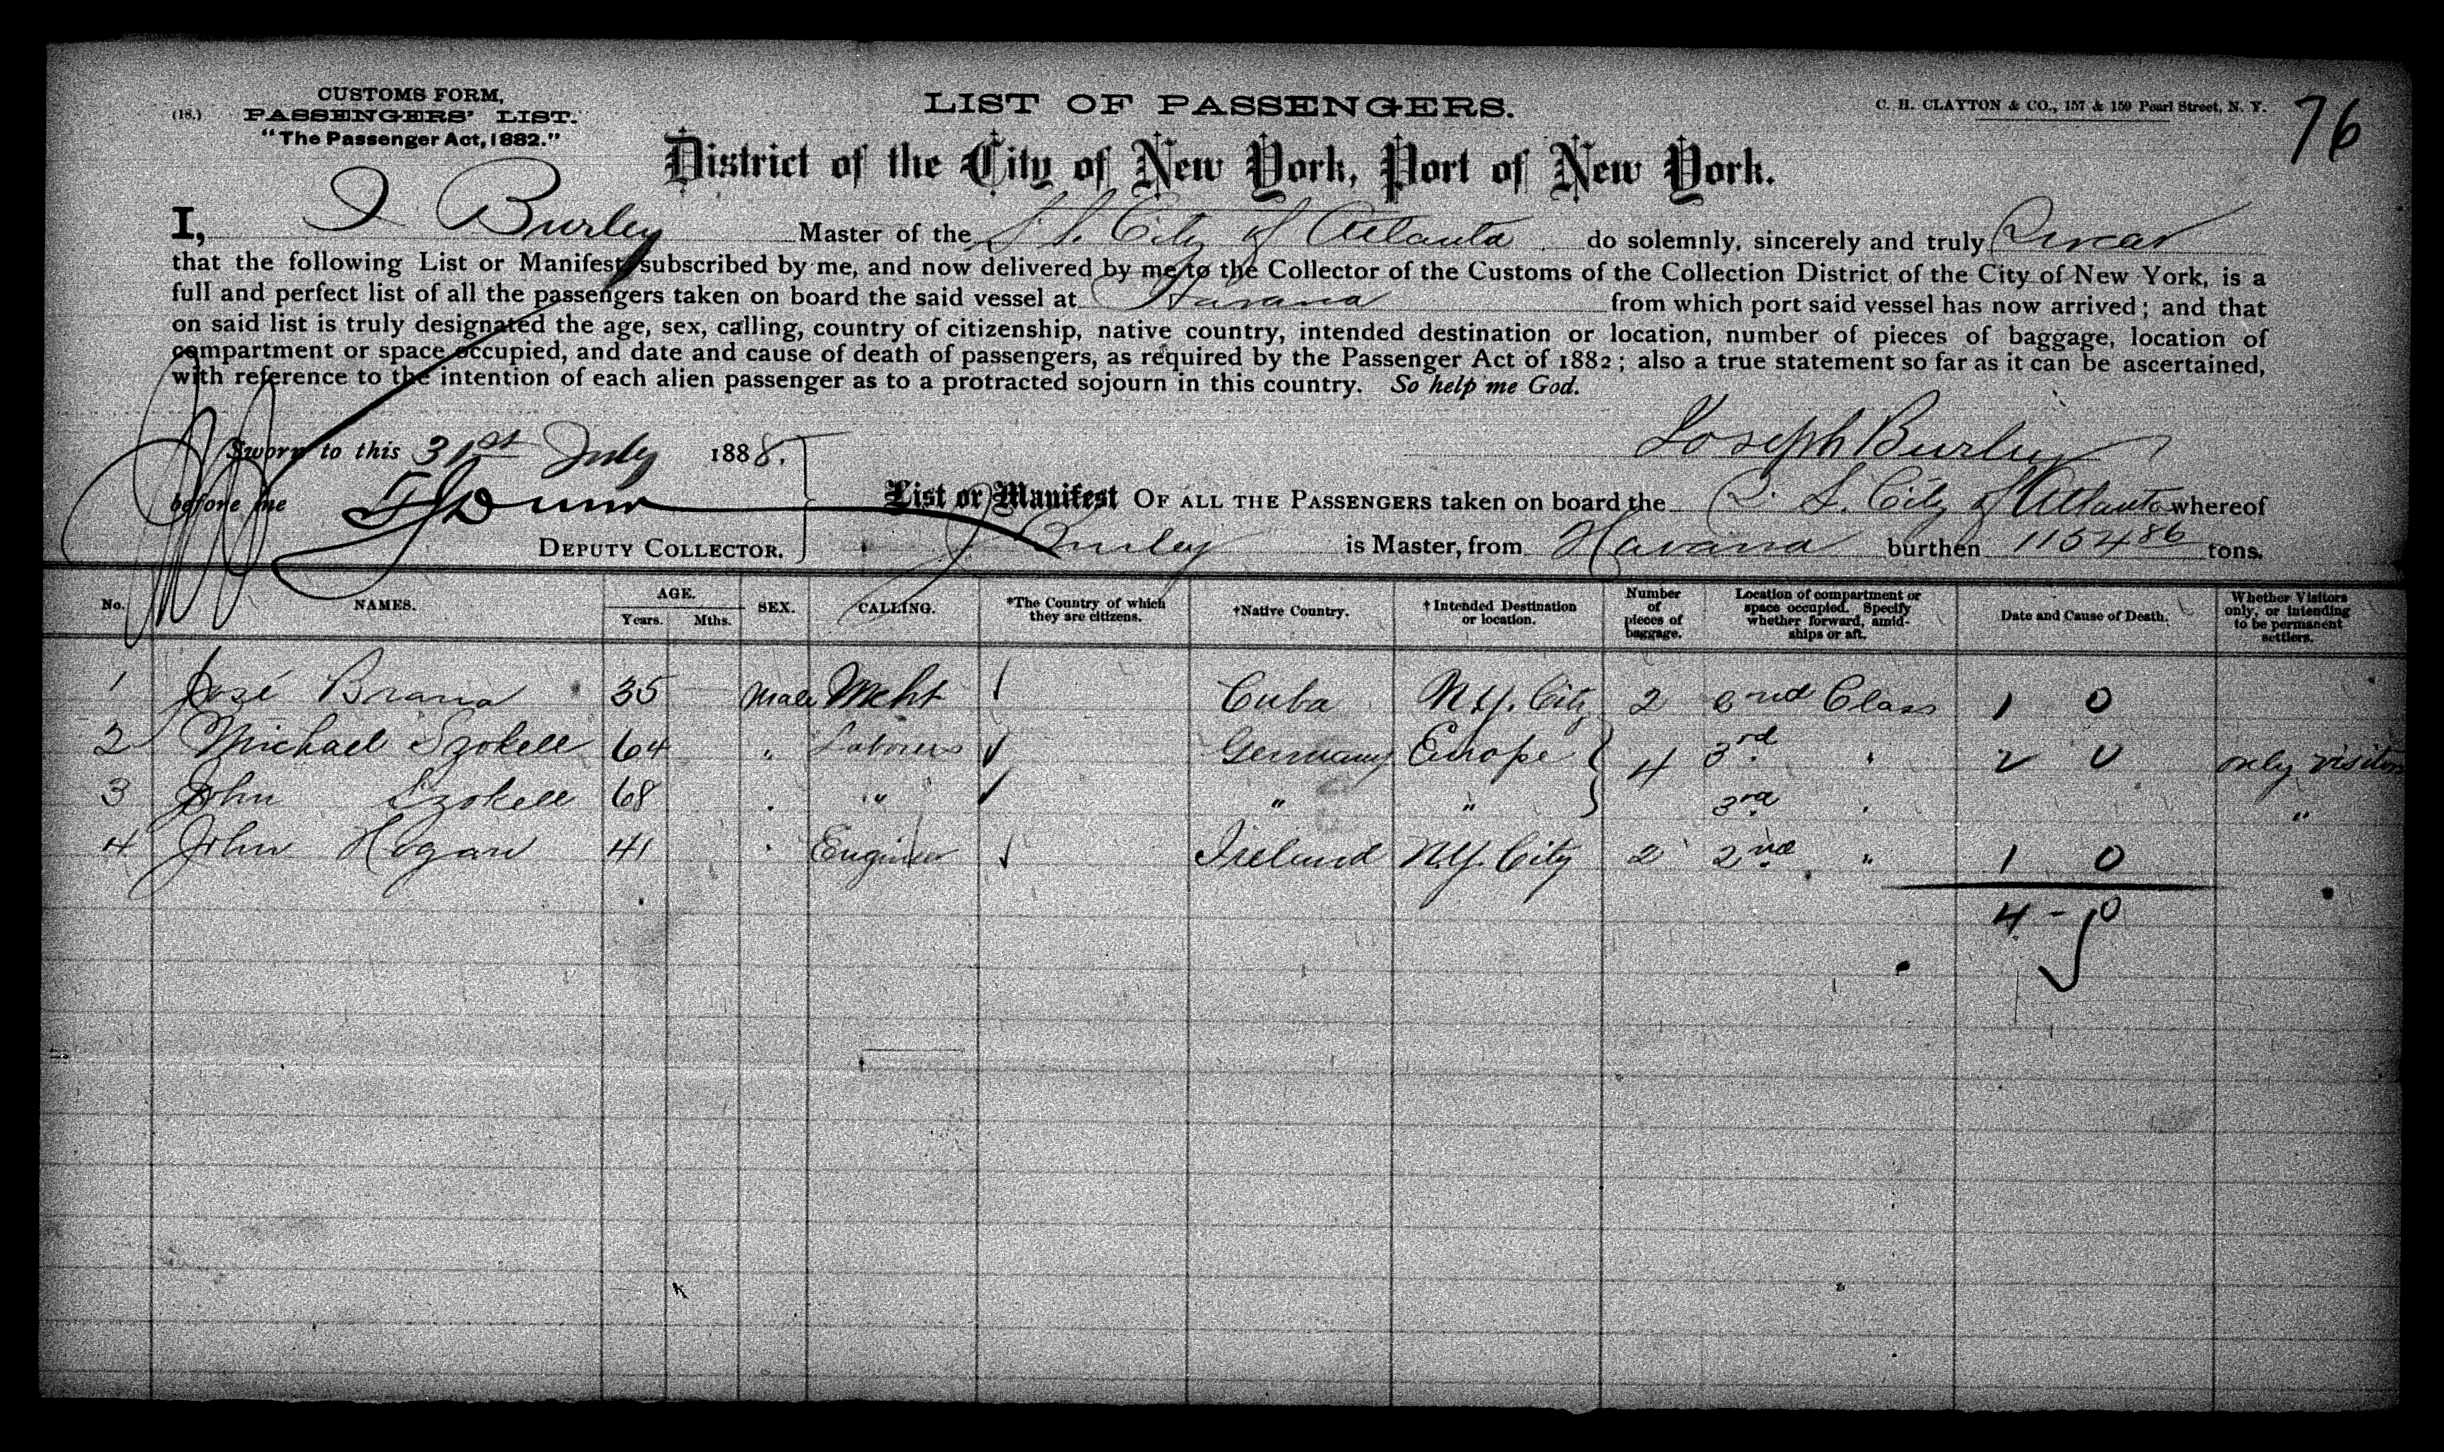 CUSTOMS FORM,
(18.) PASSENGERS' LIST.
"The Passenger Act, 1882."
LIST OF PASSENGERS.
C. H. CLAYTON & CO., 157 & 159 Pearl Street, N. Y.
76
District of the City of New York, Port of New York.
I, J Burley Master of the S. S. City of Atlanta do solemnly, sincerely and truly Swear
that the following List or Manifest subscribed by me, and now delivered by me to the Collector of the Customs of the Collection District of the City of New York, is a
full and perfect list of all the passengers taken on board the said vessel at Havana from which port said vessel has now arrived; and that
on said list is truly designated the age, sex, calling, country of citizenship, native country, intended destination or location, number of pieces of baggage, location of
compartment or space occupied, and date and cause of death of passengers, as required by the Passenger Act of 1882; also a true statement so far as it can be ascertained,
with reference to the intention of each alien passenger as to a protracted sojourn in this country. So help me God.
Sworn to this 31st July 1888.
Joseph Burley
before me
DEPUTY COLLECTOR.
List or Manifest OF ALL THE PASSENGERS taken on board the S. S. City of Atlanta whereof
J. Burley is Master, from Havana burthen 1154 86 tons.
No. NAMES. AGE. Years. Mths. SEX. CALLING. *The Country of which they are citizens. †Native Country. †Intended Destination or location. Number of pieces of baggage. Location of compartment or space occupied. Specify whether forward, amidships or aft. Date and Cause of Death. Whether Visitors only, or intending to be permanent settlers.
1 José Brana 35 Male Mcht Cuba N.Y. City 2 2nd Class 1 0
2 Michael Szokell 64 " Laborers Germany Europe 4 3rd " 2 0 only visitors
3 John Szokell 68 " " " " 3rd " "
4 John Hogan 41 " Engineer Ireland N.Y. City 2 2nd " 1 0
4 - 0